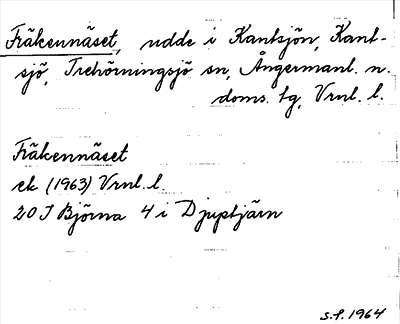 Fräkennäset, udde i Kantsjön, Kant-
sjö, Trehörningsjö sn, Ångermanl. n.
doms. tg, Vrnl. l.
Fräkennäset
ek (1963) Vrnl. l.
20 J Björna 4 i Djuptjärn
S.F. 1964